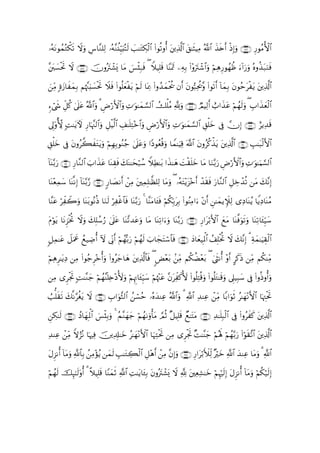 ٱلْأُمُورِ ۝ وَإِذْ أَخَذَ ٱللَّهُ مِيثَٰقَ ٱلَّذِينَ أُوتُوا۟ ٱلْكِتَٰبَ لَتُبَيِّنُنَّهُۥ لِلنَّاسِ وَلَا تَكْتُمُونَهُۥ
فَنَبَذُوهُ وَرَآءَ ظُهُورِهِمْ وَٱشْتَرَوْا۟ بِهِۦ ثَمَنًا قَلِيلًا ۖ فَبِئْسَ مَا يَشْتَرُونَ ۝ لَا تَحْسَبَنَّ
ٱلَّذِينَ يَفْرَحُونَ بِمَآ أَتَوا۟ وَّيُحِبُّونَ أَن يُحْمَدُوا۟ بِمَا لَمْ يَفْعَلُوا۟ فَلَا تَحْسَبَنَّهُم بِمَفَازَةٍ مِّنَ
ٱلْعَذَابِ ۖ وَلَهُمْ عَذَابٌ أَلِيمٌ ۝ وَلِلَّهِ مُلْكُ ٱلسَّمَٰوَٰتِ وَٱلْأَرْضِ ۗ وَٱللَّهُ عَلَىٰ كُلِّ شَىْءٍ
قَدِيرٌ ۝ إِنَّ فِى خَلْقِ ٱلسَّمَٰوَٰتِ وَٱلْأَرْضِ وَٱخْتِلَٰفِ ٱلَّيْلِ وَٱلنَّهَارِ لَءَايَٰتٍ لِّأُو۟لِى
ٱلْأَلْبَٰبِ ۝ ٱلَّذِينَ يَذْكُرُونَ ٱللَّهَ قِيَٰمًا وَقُعُودًا وَعَلَىٰ جُنُوبِهِمْ وَيَتَفَكَّرُونَ فِى خَلْقِ
ٱلسَّمَٰوَٰتِ وَٱلْأَرْضِ رَبَّنَا مَا خَلَقْتَ هَٰذَا بَٰطِلًا سُبْحَٰنَكَ فَقِنَا عَذَابَ ٱلنَّارِ ۝ رَبَّنَآ
إِنَّكَ مَن تُدْخِلِ ٱلنَّارَ فَقَدْ أَخْزَيْتَهُۥ ۖ وَمَا لِلظَّٰلِمِينَ مِنْ أَنصَارٍ ۝ رَّبَّنَآ إِنَّنَا سَمِعْنَا
مُنَادِيًا يُنَادِى لِلْإِيمَٰنِ أَنْ ءَامِنُوا۟ بِرَبِّكُمْ فَـَٔامَنَّا ۚ رَبَّنَا فَٱغْفِرْ لَنَا ذُنُوبَنَا وَكَفِّرْ عَنَّا
سَيِّـَٔاتِنَا وَتَوَفَّنَا مَعَ ٱلْأَبْرَارِ ۝ رَبَّنَا وَءَاتِنَا مَا وَعَدتَّنَا عَلَىٰ رُسُلِكَ وَلَا تُخْزِنَا يَوْمَ
ٱلْقِيَٰمَةِ ۗ إِنَّكَ لَا تُخْلِفُ ٱلْمِيعَادَ ۝ فَٱسْتَجَابَ لَهُمْ رَبُّهُمْ أَنِّى لَآ أُضِيعُ عَمَلَ عَٰمِلٍ
مِّنكُم مِّن ذَكَرٍ أَوْ أُنثَىٰ ۖ بَعْضُكُم مِّنۢ بَعْضٍ ۖ فَٱلَّذِينَ هَاجَرُوا۟ وَأُخْرِجُوا۟ مِن دِيَٰرِهِمْ
وَأُوذُوا۟ فِى سَبِيلِى وَقَٰتَلُوا۟ وَقُتِلُوا۟ لَأُكَفِّرَنَّ عَنْهُمْ سَيِّـَٔاتِهِمْ وَلَأُدْخِلَنَّهُمْ جَنَّٰتٍ تَجْرِى مِن
تَحْتِهَا ٱلْأَنْهَٰرُ ثَوَابًا مِّنْ عِندِ ٱللَّهِ ۗ وَٱللَّهُ عِندَهُۥ حُسْنُ ٱلثَّوَابِ ۝ لَا يَغُرَّنَّكَ تَقَلُّبُ
ٱلَّذِينَ كَفَرُوا۟ فِى ٱلْبِلَٰدِ ۝ مَتَٰعٌ قَلِيلٌ ثُمَّ مَأْوَىٰهُمْ جَهَنَّمُ ۚ وَبِئْسَ ٱلْمِهَادُ ۝ لَٰكِنِ
ٱلَّذِينَ ٱتَّقَوْا۟ رَبَّهُمْ لَهُمْ جَنَّٰتٌ تَجْرِى مِن تَحْتِهَا ٱلْأَنْهَٰرُ خَٰلِدِينَ فِيهَا نُزُلًا مِّنْ عِندِ
ٱللَّهِ ۗ وَمَا عِندَ ٱللَّهِ خَيْرٌ لِّلْأَبْرَارِ ۝ وَإِنَّ مِنْ أَهْلِ ٱلْكِتَٰبِ لَمَن يُؤْمِنُ بِٱللَّهِ وَمَآ أُنزِلَ
إِلَيْكُمْ وَمَآ أُنزِلَ إِلَيْهِمْ خَٰشِعِينَ لِلَّهِ لَا يَشْتَرُونَ بِـَٔايَٰتِ ٱللَّهِ ثَمَنًا قَلِيلًا ۗ أُو۟لَٰٓئِكَ لَهُمْ